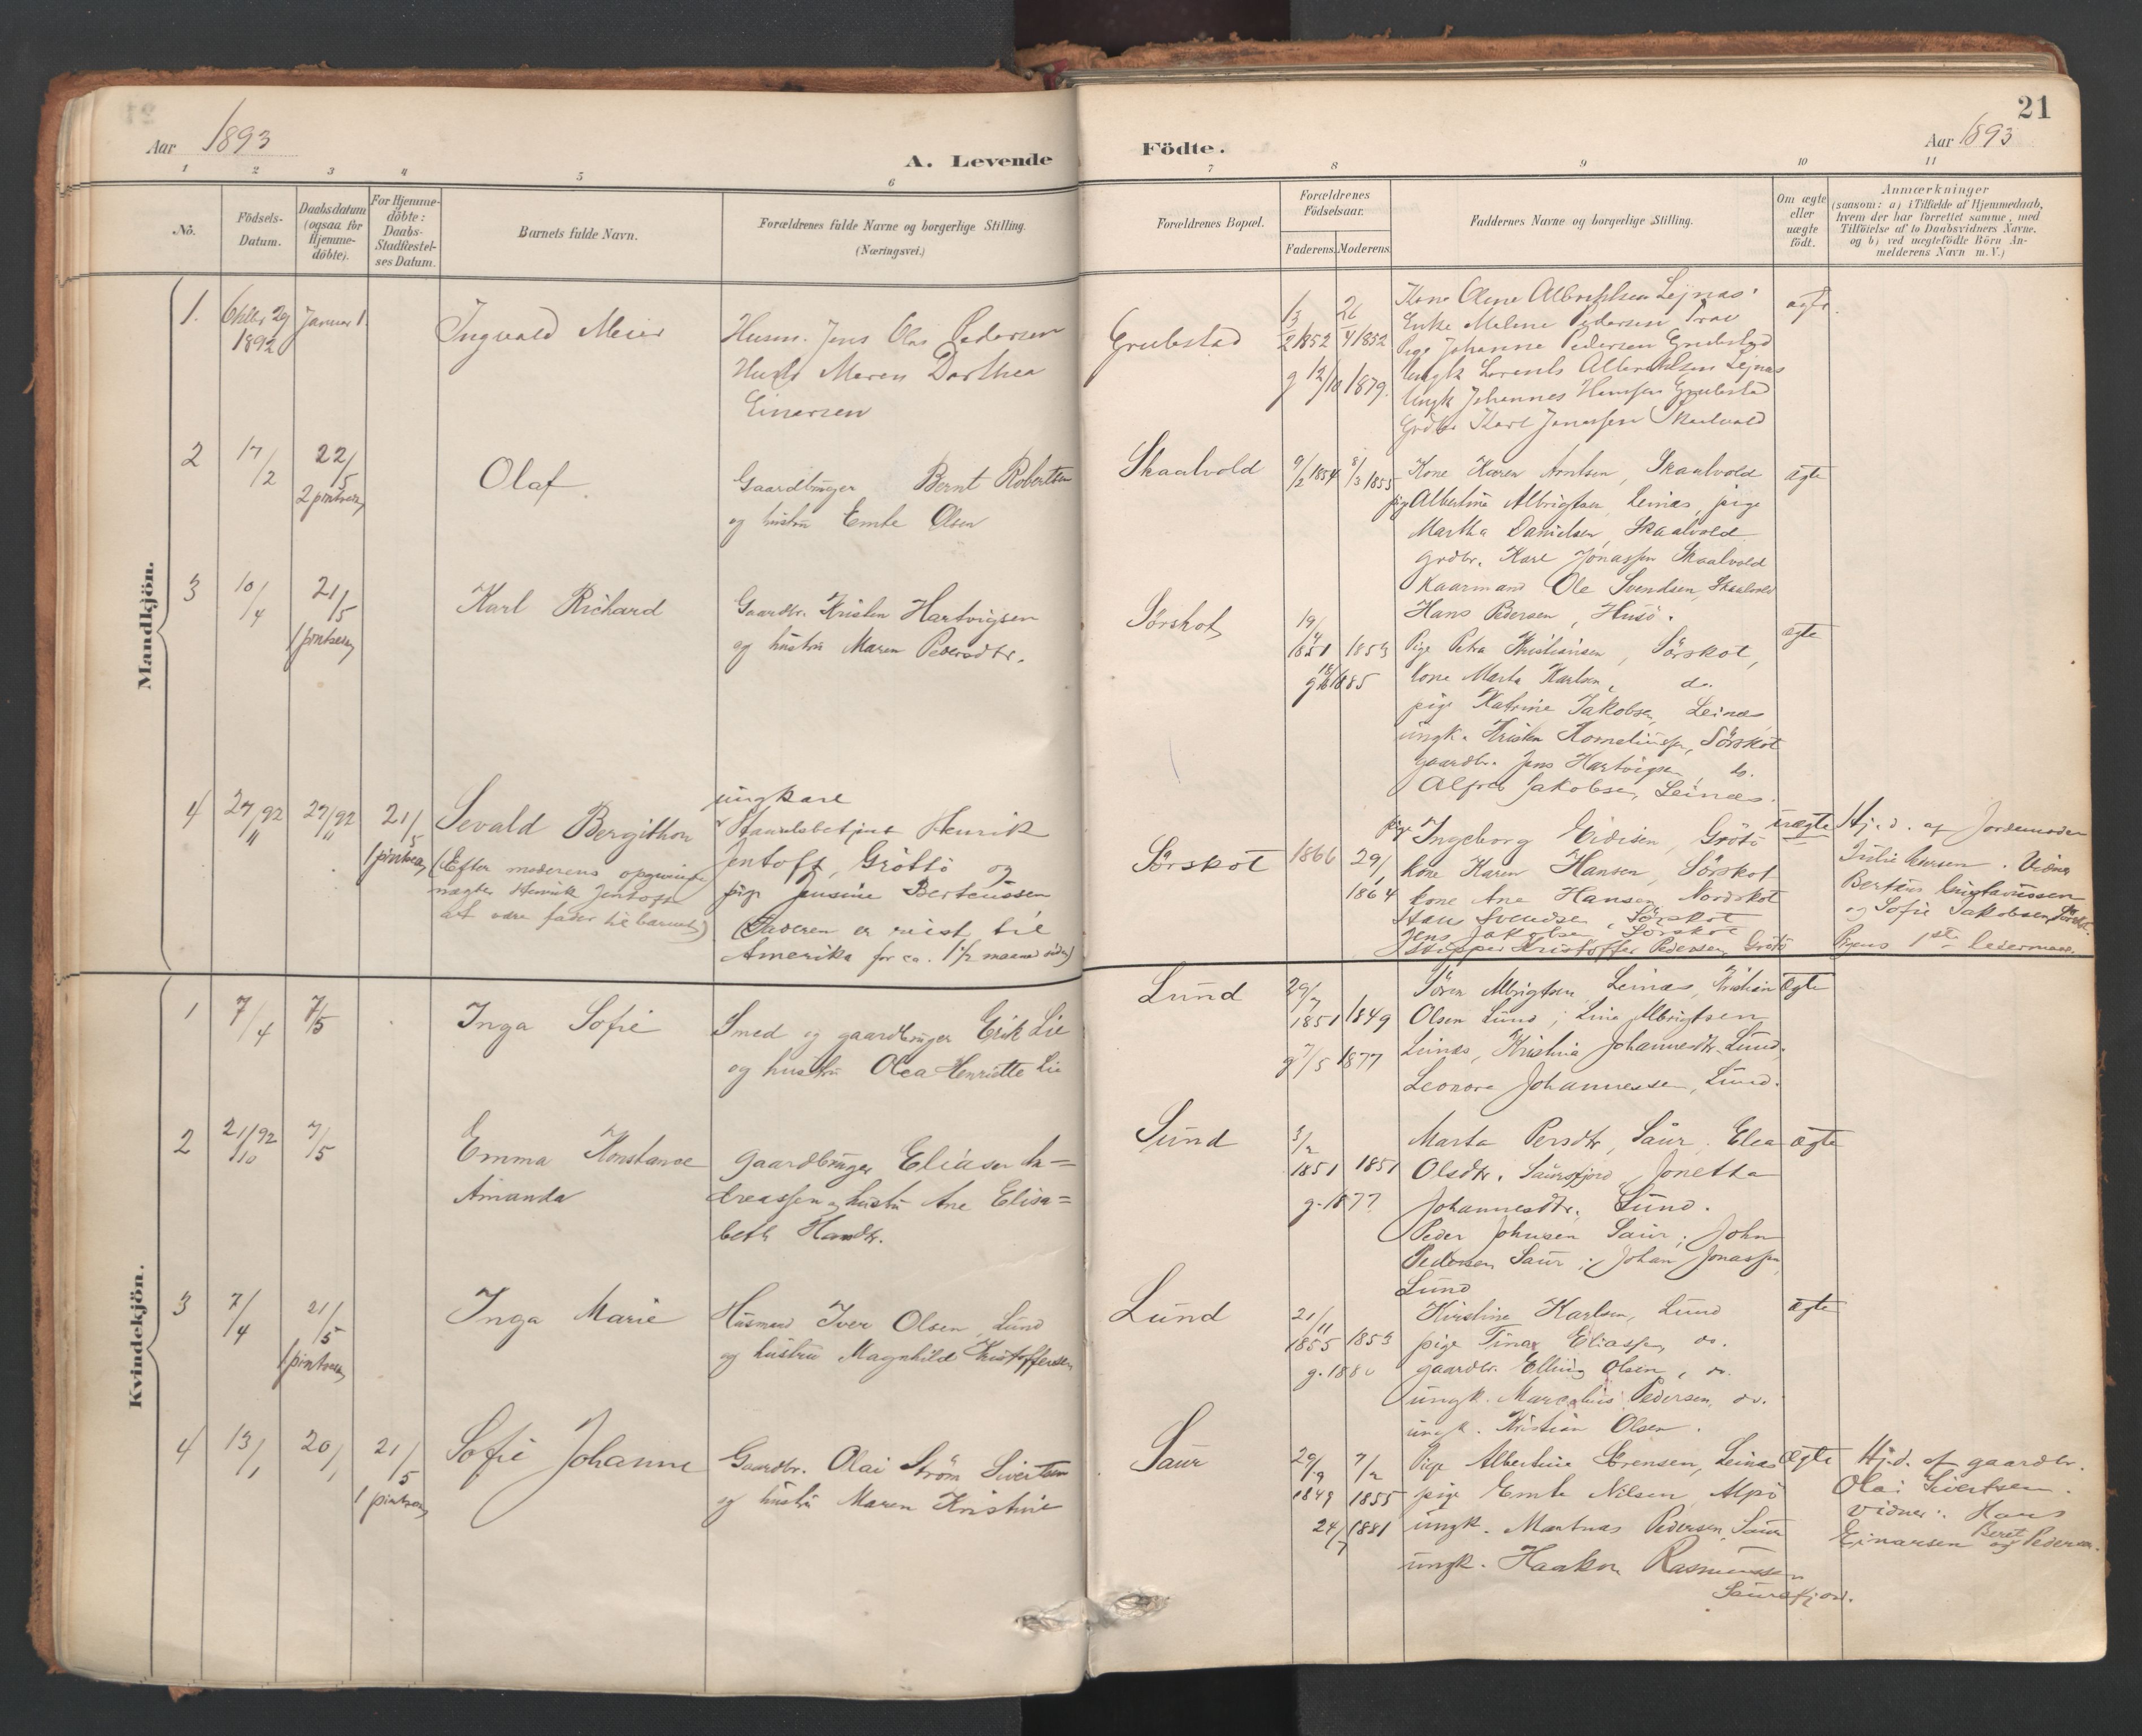 21
Aar 1893
A. Levende
Födte.
Aar 1893
1 2 3 4 5 6 7 8 9 10 11
No.
Födsels-
Datum.
Daabsdatum
(ogsaa for
Hjemme-
döbte).
For Hjemme-
döbte:
Daabs-
Stadfæstel-
ses Datum.
Barnets fulde Navn.
Forældrenes fulde Navne og borgerlige Stilling.
(Næringsvei.)
Forældrenes Bopæl.
Forældrenes
Födselsaar.
Faderens. Moderens.
Faddernes Navne og borgerlige Stilling.
Om ægte
eller
uægte
födt.
Anmærkninger
(saasom: a) i Tilfælde af Hjemmedaab,
hvem der har forrettet samme, med
Tilföielse af to Daabsvidners Navne,
og b) ved uægtefödte Börn An-
melderens Navn m.V.)
Mandkjön.
1. 29 1892
Januar 1.
Ingvald Meier
Husm. Jens Olai Pedersen
Hustr Maren Dorthea
Einersen
Grubstad
13/2 1852
26/4 1852
g 12/10 1879.
Kone Oline Albrektsen Lejnas
Enke Malene Pedersen
Pige Johanne Pedersen Grubstad
Ungk Lorents Albrektsen Lejnas
Ungk Johannes Hansen Grubstad
Grdbr Karl Jonassen Skaalvold
ægte.
2 17/2 22/5
2 pintsed.
Olaf
Gaardbruger Bernt Robertsen
og hustru Emte Olsen
Skaalvold
9/2 1854 8/3 1855
Kone Karen Arntsen, Skaalvold
pig Albertine Albrigtsen, Leines, pige
Martha Danielsen, Skaalvold
grdbr. Karl Jonassen Skaalvold
Kaarmand Ole Svendsen, Skaalvold
Hans Pedersen, Husö.
ægte
3 10/4 21/5
1 pintsed.
Karl Richard
Gaardbr. Kristen Hartvigsen
og hustru Maren Pedersdtr.
Sörskot
19/4 1851 1853
1885
Pige Petra Kristiansen, Sörskot,
kone Marta Karlsen, do.
pige Katrine Jakobsen, Leines
ungk. Kristen Korneliussen, Sörskot
gaardbr. Jens Hartvigsen do.
Alfred Jakobsen, Leines.
ægte
4 27/11 92 27/11 92 21/5
1 pintsed.
Sevald Bergithon
(Efter moderens opgivende
nægter Henrik Jentoft
at være fader til barnet)
ungkarl
Handelsbetjent Henrik
Jentoft, Gröttö og
pige Jensine Berteussen
(Faderen er reist til
Amerika for ca. 1 1/2 maaned siden)
Sörskot
1866 29/1 1864
pige Ingeborg Eidisen, Grötö
kone Karen Hansen, Sörskot
kone Ane Hansen Nordskot
Hans Svendsen, Sörskot
Jens Jakobsen, Sörskot
Skipper Kristoffer Pedersen, Grötö
uægte
Hj.d. af Jordemoder
Julie. Vidner
Berteus Gustavussen
og Sofie Jakobsen, Sörsk.
Pigens 1ste leiermaal.
Kvindekjön.
1 7/4 7/5
Inga Sofie
Smed og gaardbruger Erik Lie
og hustru Olea Henriette Lie
Lund
29/7 1851 1849
g 7/5 1877
Sören Albrigtsen Leines, Kristian
Olsen Lund; Lina Albrigtsen
Leines, Kristina Johannesdtr. Lund,
Leonore Johannessen, Lund.
ægte
2 21/10 92 7/5
Emma Konstanse
Amanda
Gaardbruger Eliaser An=
dreassen og hustru Ane Elisa=
beth Hansdtr.
Lund
3/2 1851 1851
g. 1877
Marta Persdtr, Saur. Elea
Olsdtr. Saursfjord, Jonetta
Johannesdtr. Lund.
Peder Johnsen Saur; John
Pedersen Saur; Johan Jonassen,
Lund
ægte
3 7/4 21/5
1 pintsed.
Inga Marie
Husmand Iver Olsen, Lund
og hustru Magnhild Kristoffersen
Lund
21/11 1855 1853
g. 1880
Kirstine Karlsen, Lund
pige Tina Eliassen, do.
gaardbr. Elling Olsen, do.
ungk. Marcelius Pedersen, do.
ungk. Kristian Olsen.
ægte
4 13/1 20/1 21/5
1 pintsed.
Sofie Johanne
Gaardbr. Olai Ström Sivertsen
og hustru Maren Kristine
Saur
29/9 1849 7/2 1855
24/7 1881
Pige Albertine Lorensen, Leines
pige Emte Nilsen, Alpö
ungk. Martinus Pedersen, Saur
ungk. Haakon Rasmussen
Saursfjord.
ægte
Hj.d. af gaardbr.
Olai Sivertsen.
Vidner: Hans
Einarsen og Beret Pedersen.